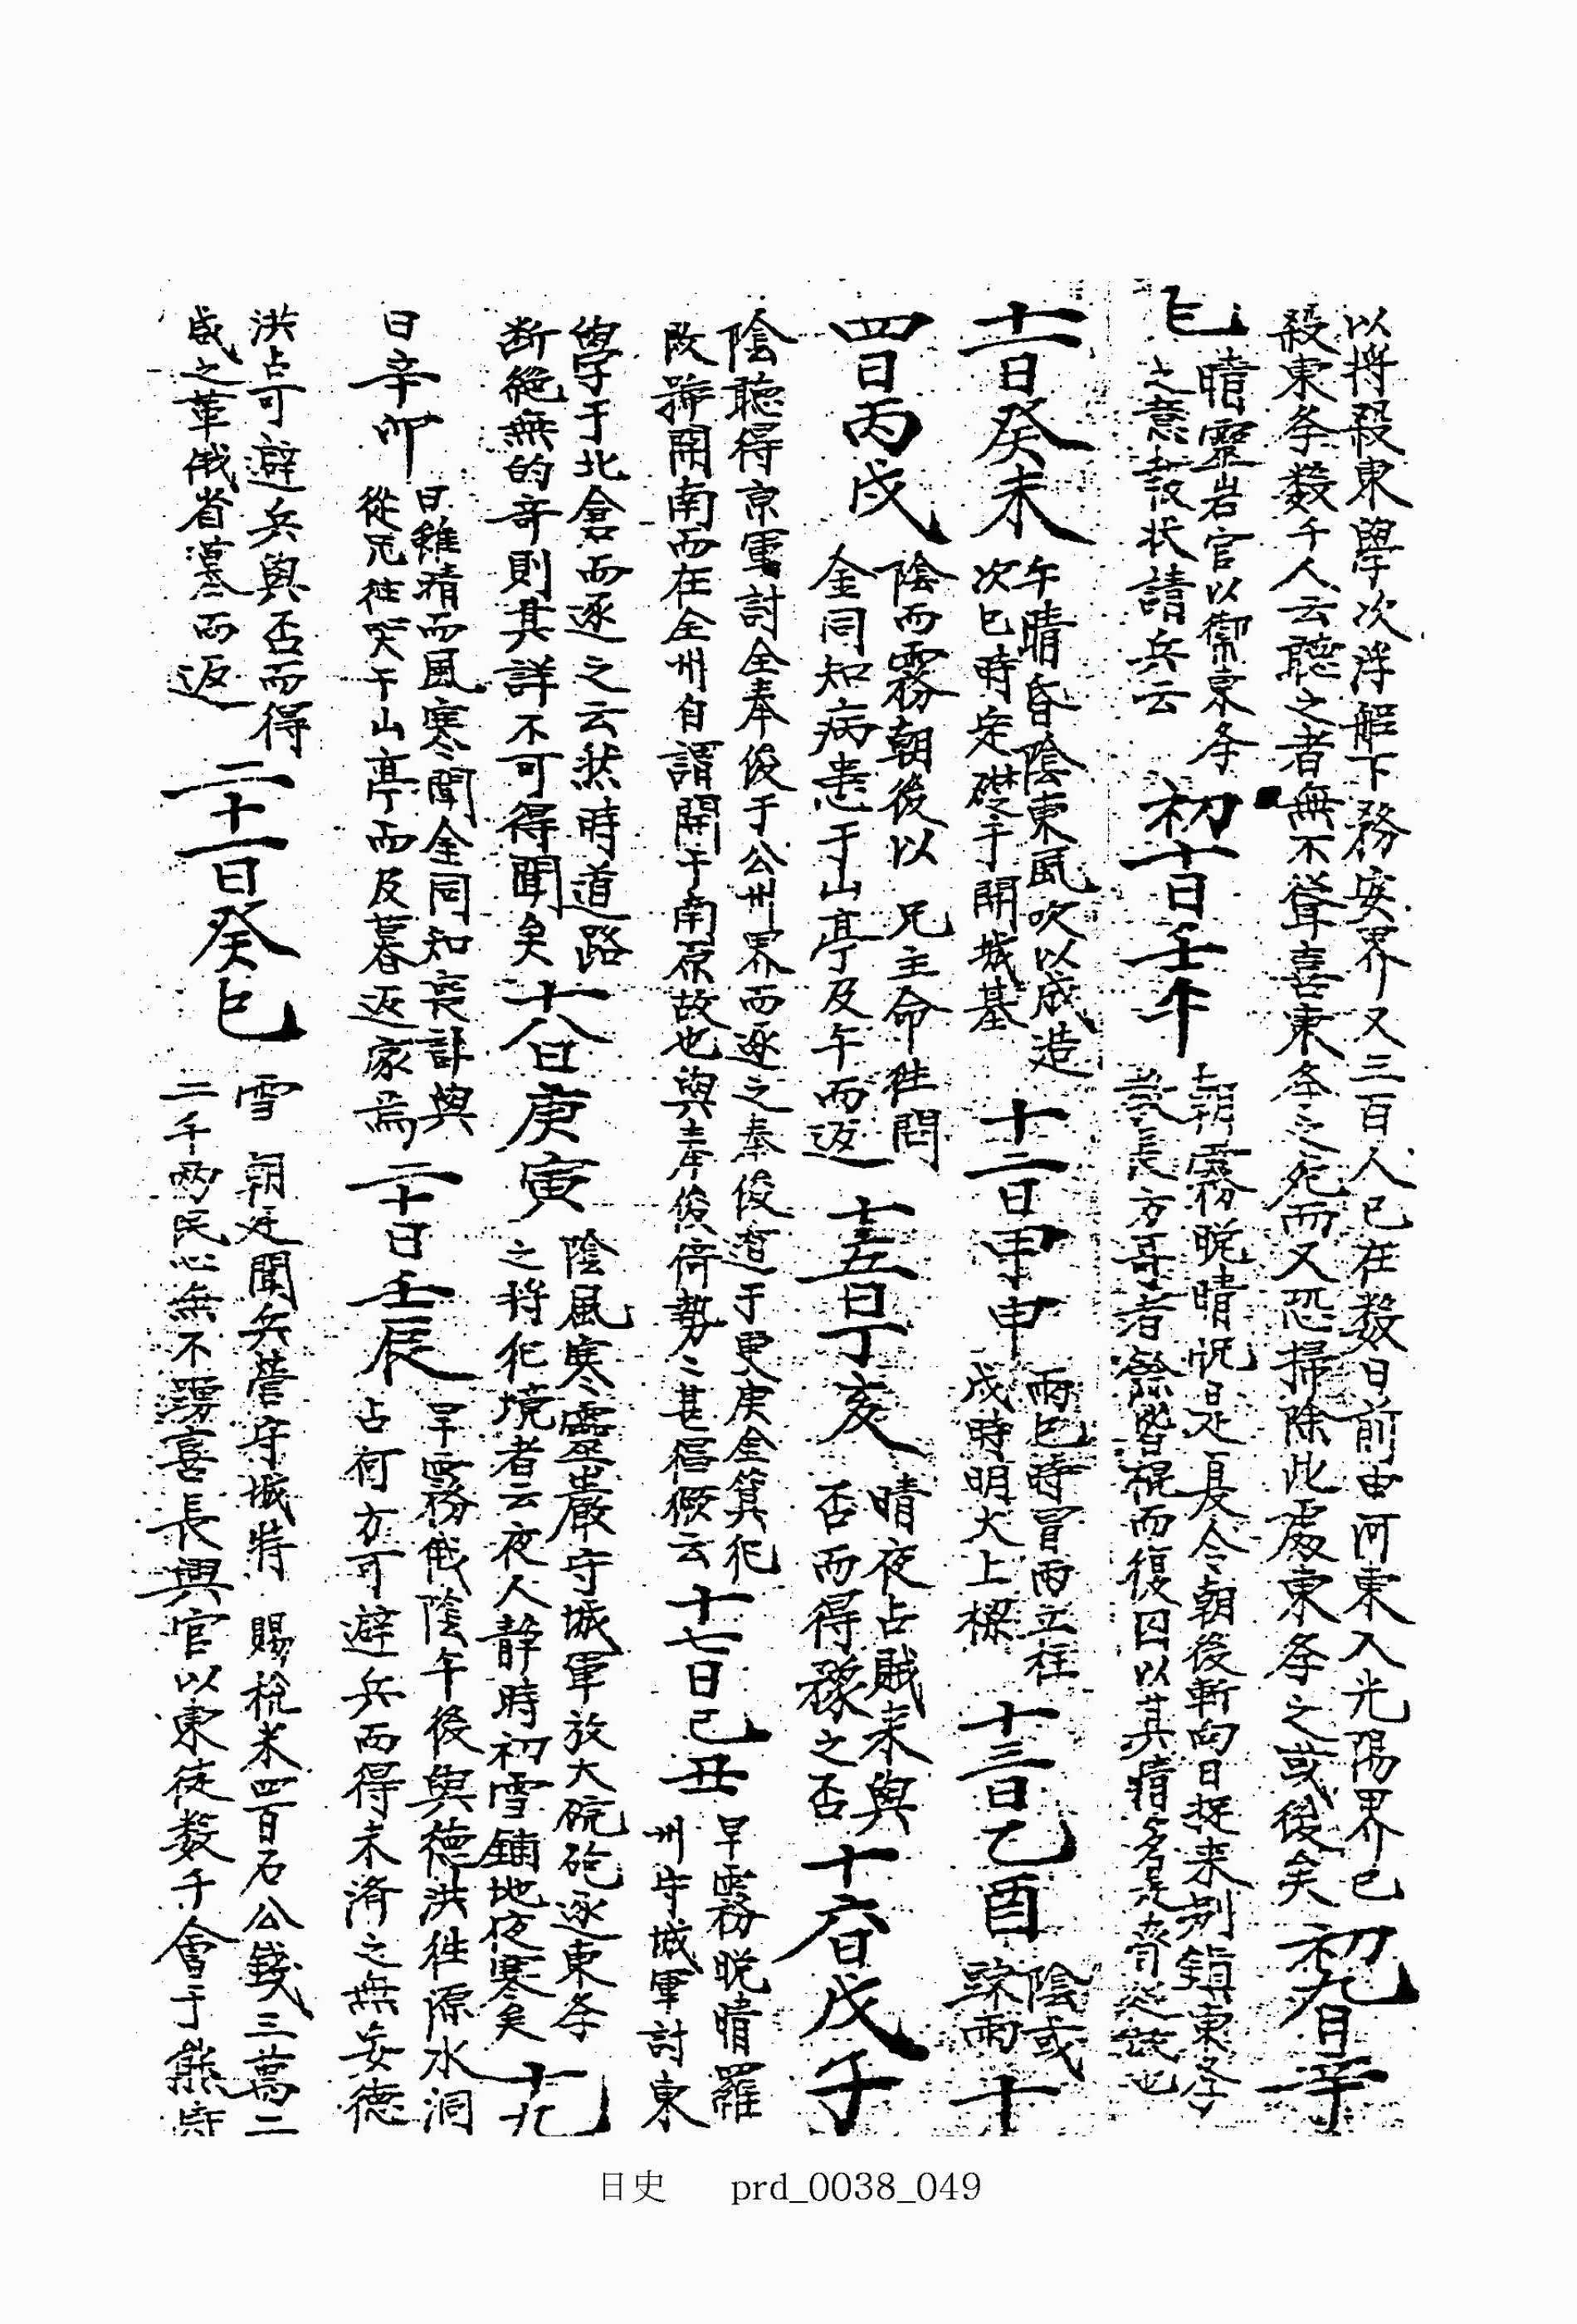 以將殺東學次浮艇下務安界又三百人已在数日前由河東入光陽界已
殺東条数千人云聽之者無不聳喜東条之死而又恐掃除此處東条之或後矣
初九日辛
巳
晴靈岩官以禦東条
之意設状請兵云
初十日壬午
朝霧晩晴悅日是夏令朝後斬向日捉来剡鎮東条
裵長方哥者餘皆棍而復囚以其精名是脅從故也
十一日癸未
午晴昏陰東風吹以成造
次巳時定礎于開城基
十二日甲申
雨巳時冒雨立柱
戌時明大上樑
十三日乙酉
陰或
踈雨
十
四日丙戌
陰而霧朝後以 兄主命徃問
金同知病患于山亭及午而返
十五日丁亥
晴夜占賊来與
否而得豫之否
十六日戊子
陰聽得京軍討全奉俊于公州界而逐之奉俊遁于更庚金箕犯
改號開南而在全州自謂開于南原故也與奉俊倚勢〻甚信儼云
十七日己丑
早霧晩晴羅
州守城軍討東
學于北倉而逐之云然時道路
断絶無的奇則其詳不可得聞矣
十八日庚寅
陰風寒靈巖守城軍放大碗砲逐東条
之将犯境者云夜人静時初雪鋪地夜寒矣
十九
日辛卯
日雖晴而風寒聞金同知喪訃與
從兄徃哭于山亭而及暮返家焉
二十日壬辰
早霧俄陰午後與德洪徃源水洞
占何方可避兵而得未济之無妄德
洪占可避兵與否而得
咸之革俄省墓而返
二十一日癸巳
雪 朝廷聞兵營守城將 賜稅米四百石公錢三萬二
二千两民心無不踴喜長興官以東徒数千會于熊峙
日史 prd_0038_049